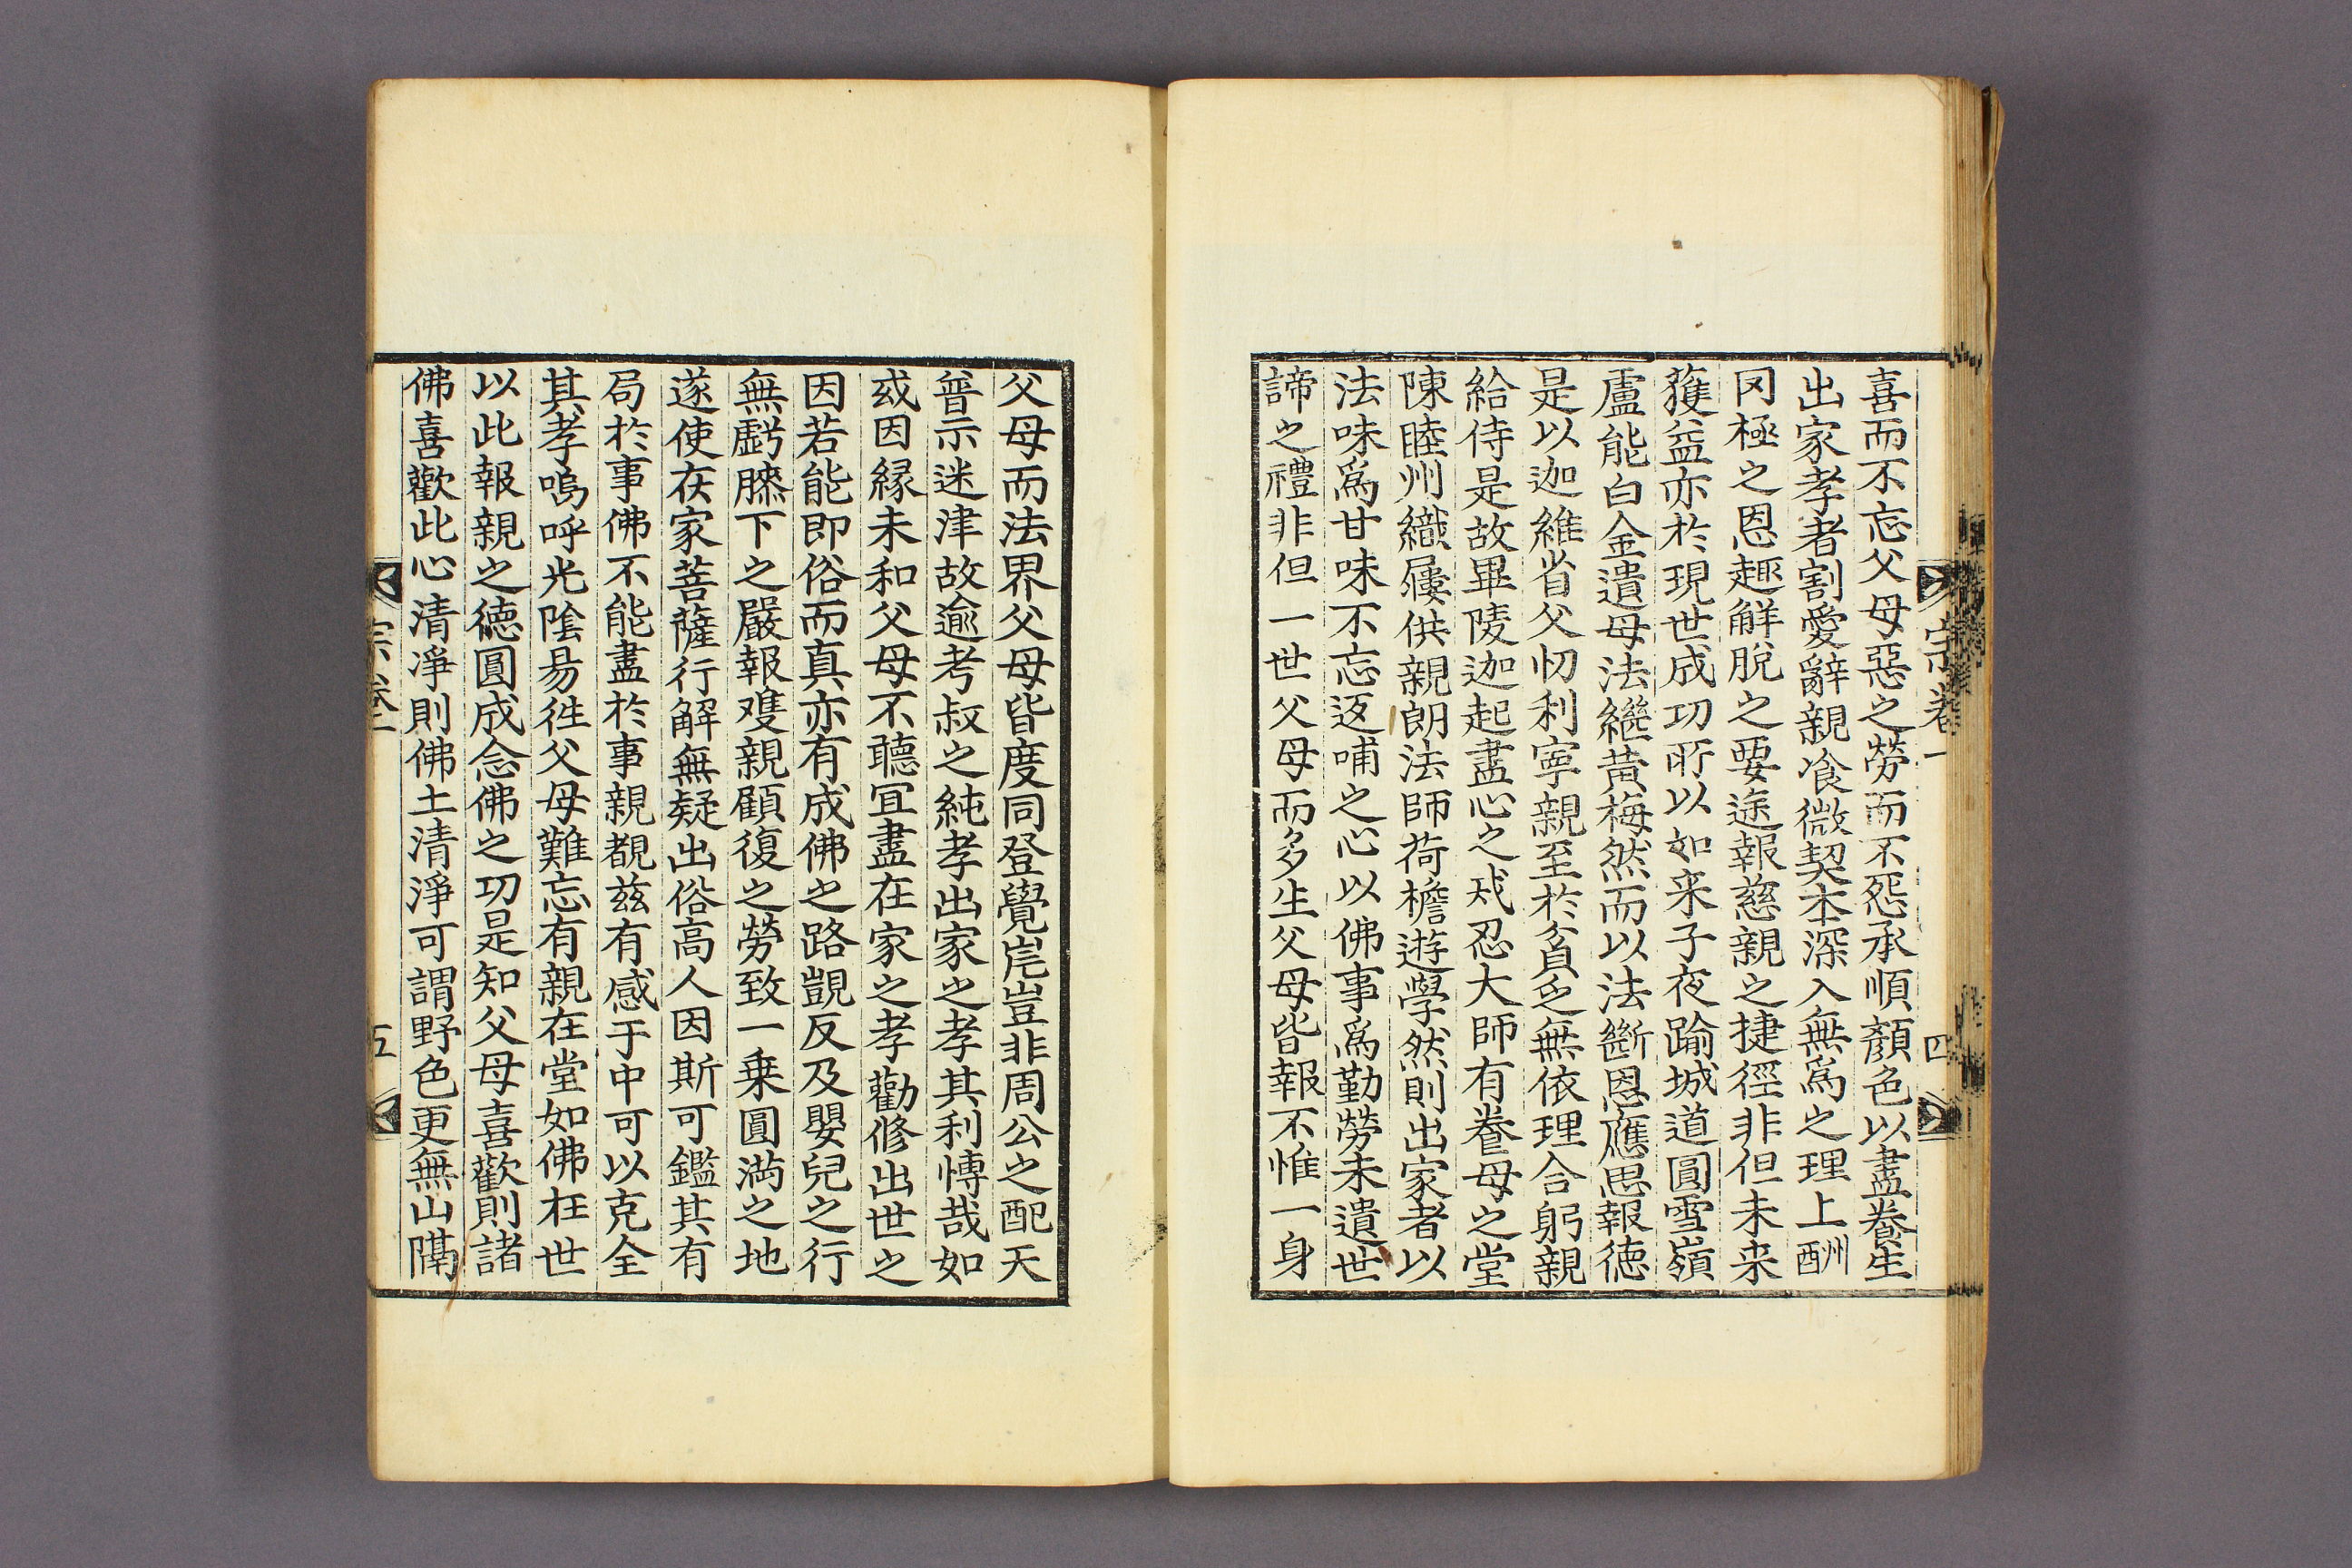 宗卷一
四
喜而不忘父母惡之勞而不怨承順顏色以盡養生
出家孝者割愛辭親飡微契本深入無爲之理上酬
罔極之恩趣解脫之要途報慈親之捷徑非但未来
獲益亦於現世成功所以如来子夜踰城道圓雪嶺
盧能白金遺母法繼黄梅然而以法斷恩應思報徳
是以迦維省父忉利寧親至於貧乏無依理合躬親
給侍是故畢陵迦起盡心之戒忍大師有養母之堂
陳睦州織屨供親朗法師荷檐遊學然則出家者以
法味爲甘味不忘返哺之心以佛事爲勤勞未遺世
諦之禮非但一世父母而多生父母皆報不惟一身
父母而法界父母皆度同登覺岸豈非周公之配天
普示迷津故逾考叔之純孝出家之孝其利博哉如
或因緣未和父母不聽宜盡在家之孝勸修出世之
因若能即俗而真亦有成佛之路覬反及嬰兒之行
無虧膝下之嚴報雙親顧復之勞致一乗圓滿之地
遂使在家菩薩行解無疑出俗高人因斯可鑑其有
局於事佛不能盡於事親覩兹有感于中可以克全
其孝嗚呼光陰易徃父母難忘有親在堂如佛在世
以此報親之徳圓成念佛之功是知父母喜歡則諸
佛喜歡此心清淨則佛土清淨可謂野色更無山隔
宗卷一
五